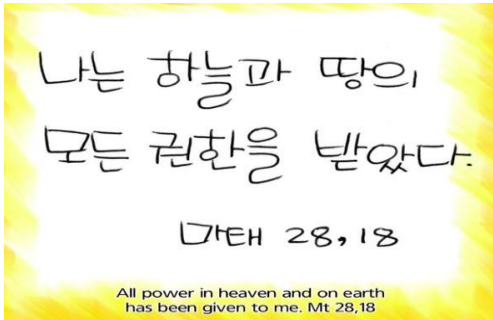 나는 하늘과 땅의
모든 권한을 받았다.
마태 28,18
All power in heaven and on earth
has been given to me. Mt 28,18